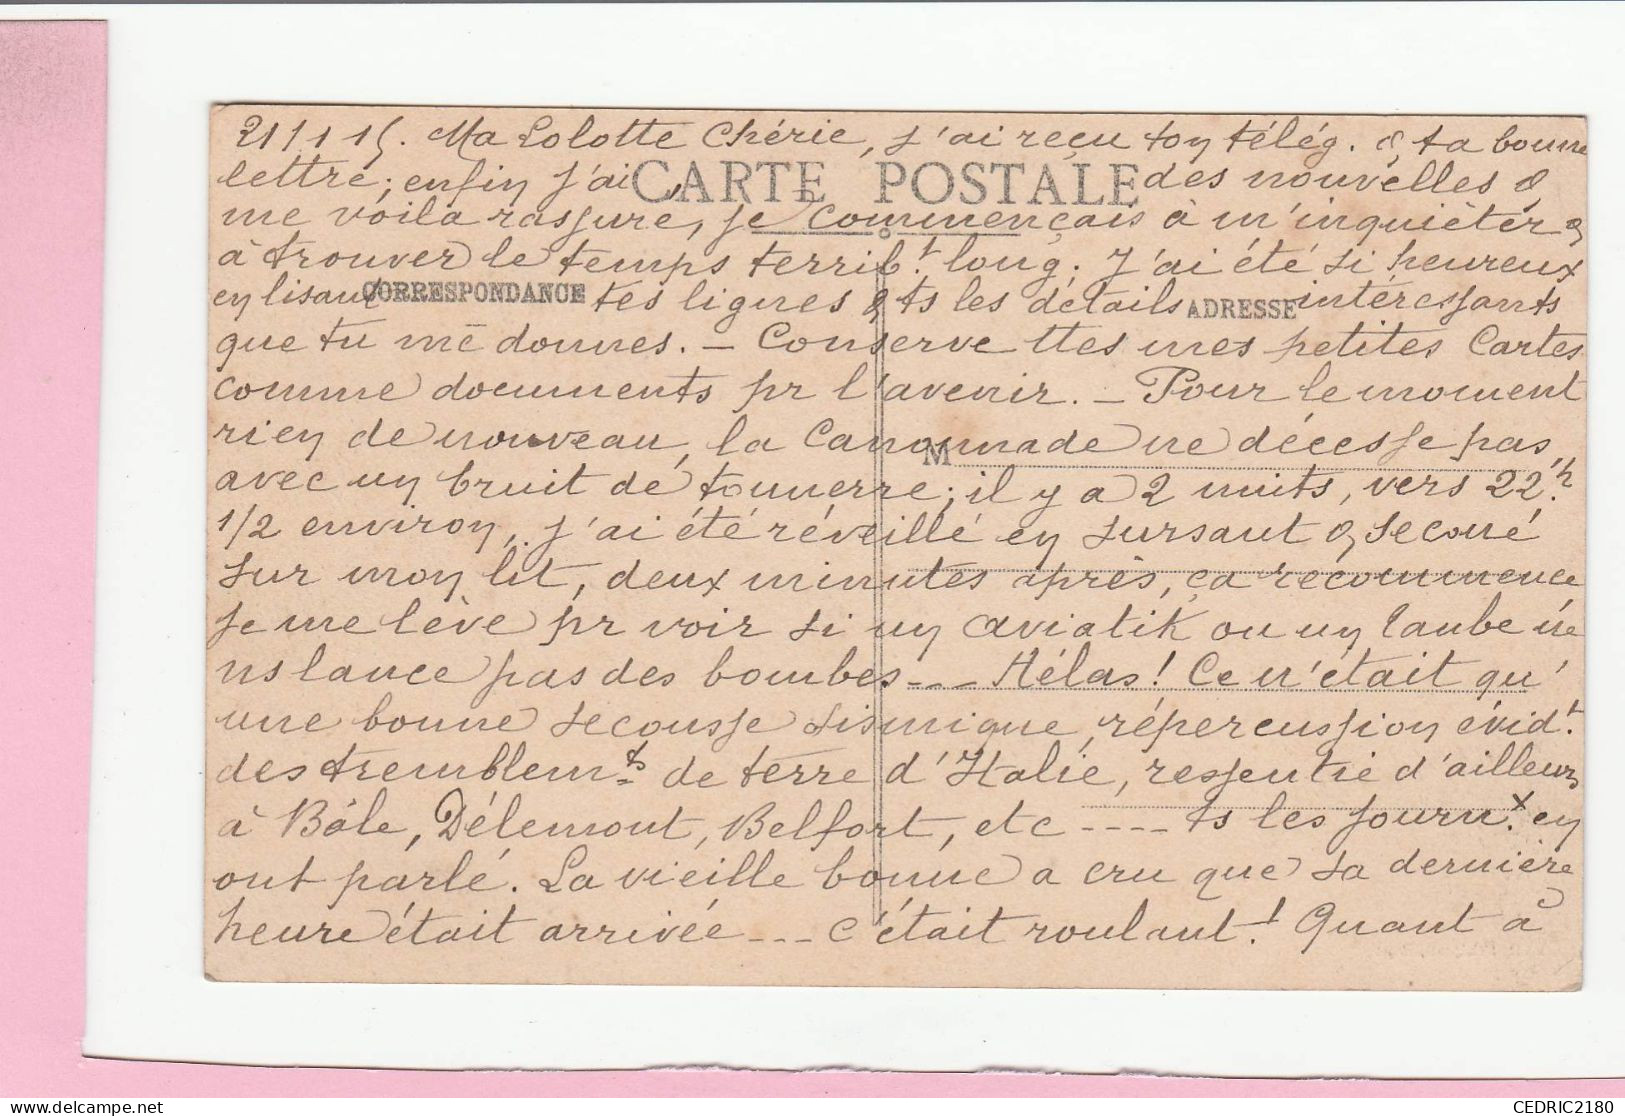 21/1 15. Ma Lolotte Chérie, j'ai reçu ton télég. & ta bonne
lettre; enfin j'ai des nouvelles &
CARTE POSTALE
me voila rassuré, je commençais à m'inquiéter &
à trouver le temps terribt. long. J'ai été si heureux
en lisant tes lignes & ts les détails intéressants
CORRESPONDANCE ADRESSE
que tu me donnes. – Conserve ttes mes petites Cartes
comme documents pr l'avenir. – Pour le moment
rien de nouveau, la Canonnade ne décesse pas,
M
avec un bruit de tonnerre; il y a 2 nuits, vers 22h.
1/2 environ, j'ai été réveillé en sursaut & secoué
sur mon lit, deux minutes après, ça recommence
Je me lève pr voir si un aviatik ou un taube ne
ns lance pas des bombes --- Hélas! Ce n'était qu'
une bonne secousse sismique, répercussion évidt.
des tremblemts de terre d'Italie, ressentie d'ailleurs
à Bâle, Délemont, Belfort, etc ---- ts les journx. en
ont parlé. La vieille bonne a cru que sa dernière
heure était arrivée --- c'était roulant! Quant à
CEDRIC2180